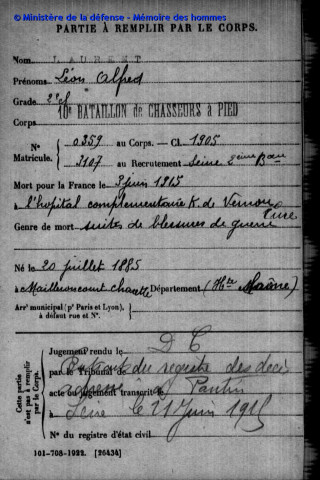 © Ministère de la défense - Mémoire des hommes
PARTIE À REMPLIR PAR LE CORPS.
Nom LAURET
Prénoms Léon Alfred
Grade 2e cl
Corps 10e BATAILLON de CHASSEURS à PIED
N° 0359 au Corps. — Cl. 1905
Matricule. 3107 au Recrutement Seine 2ème Bau
Mort pour la France le 3 juin 1915
à l'hopital complémentaire K. de Vernon
Eure
Genre de mort suites de blessures de guerre
Né le 20 juillet 1885
à Mailleroncourt Charette Département (Hte Saône)
Arr' municipal (p' Paris et Lyon),
à défaut rue et N°.
Cette partie n'est pas à remplir par le Corps.
Jugement rendu le D C
par le Tribunal de du registre des décès
acte ou jugement transcrit le à Pantin
Seine le 11 Juin 1915
N° du registre d'état civil
101-708-1922. [26434]